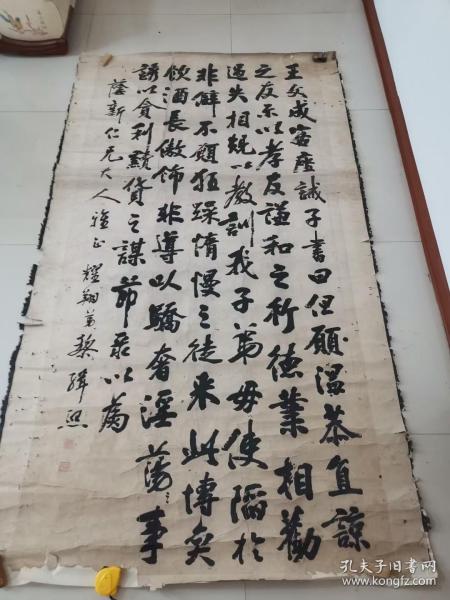 王文成客座誡子書曰但願温恭直諒
之友示以孝友謙和之行德業相勸
過失相規以教訓我子弟毋使陷於
非僻不願狂躁惰慢之徒来此博弈
飲酒長傲飾非導以驕奢淫蕩之事
誘以貪利黷貨之謀節录以為
蔭新仁兄大人雅正 耀翔弟黎
孔夫子旧书网
www.kongfz.com